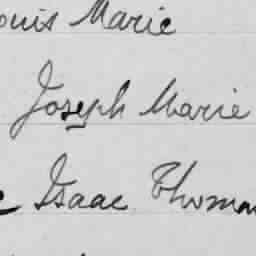 ouis Marie
Joseph Marie
Isaac Thomas